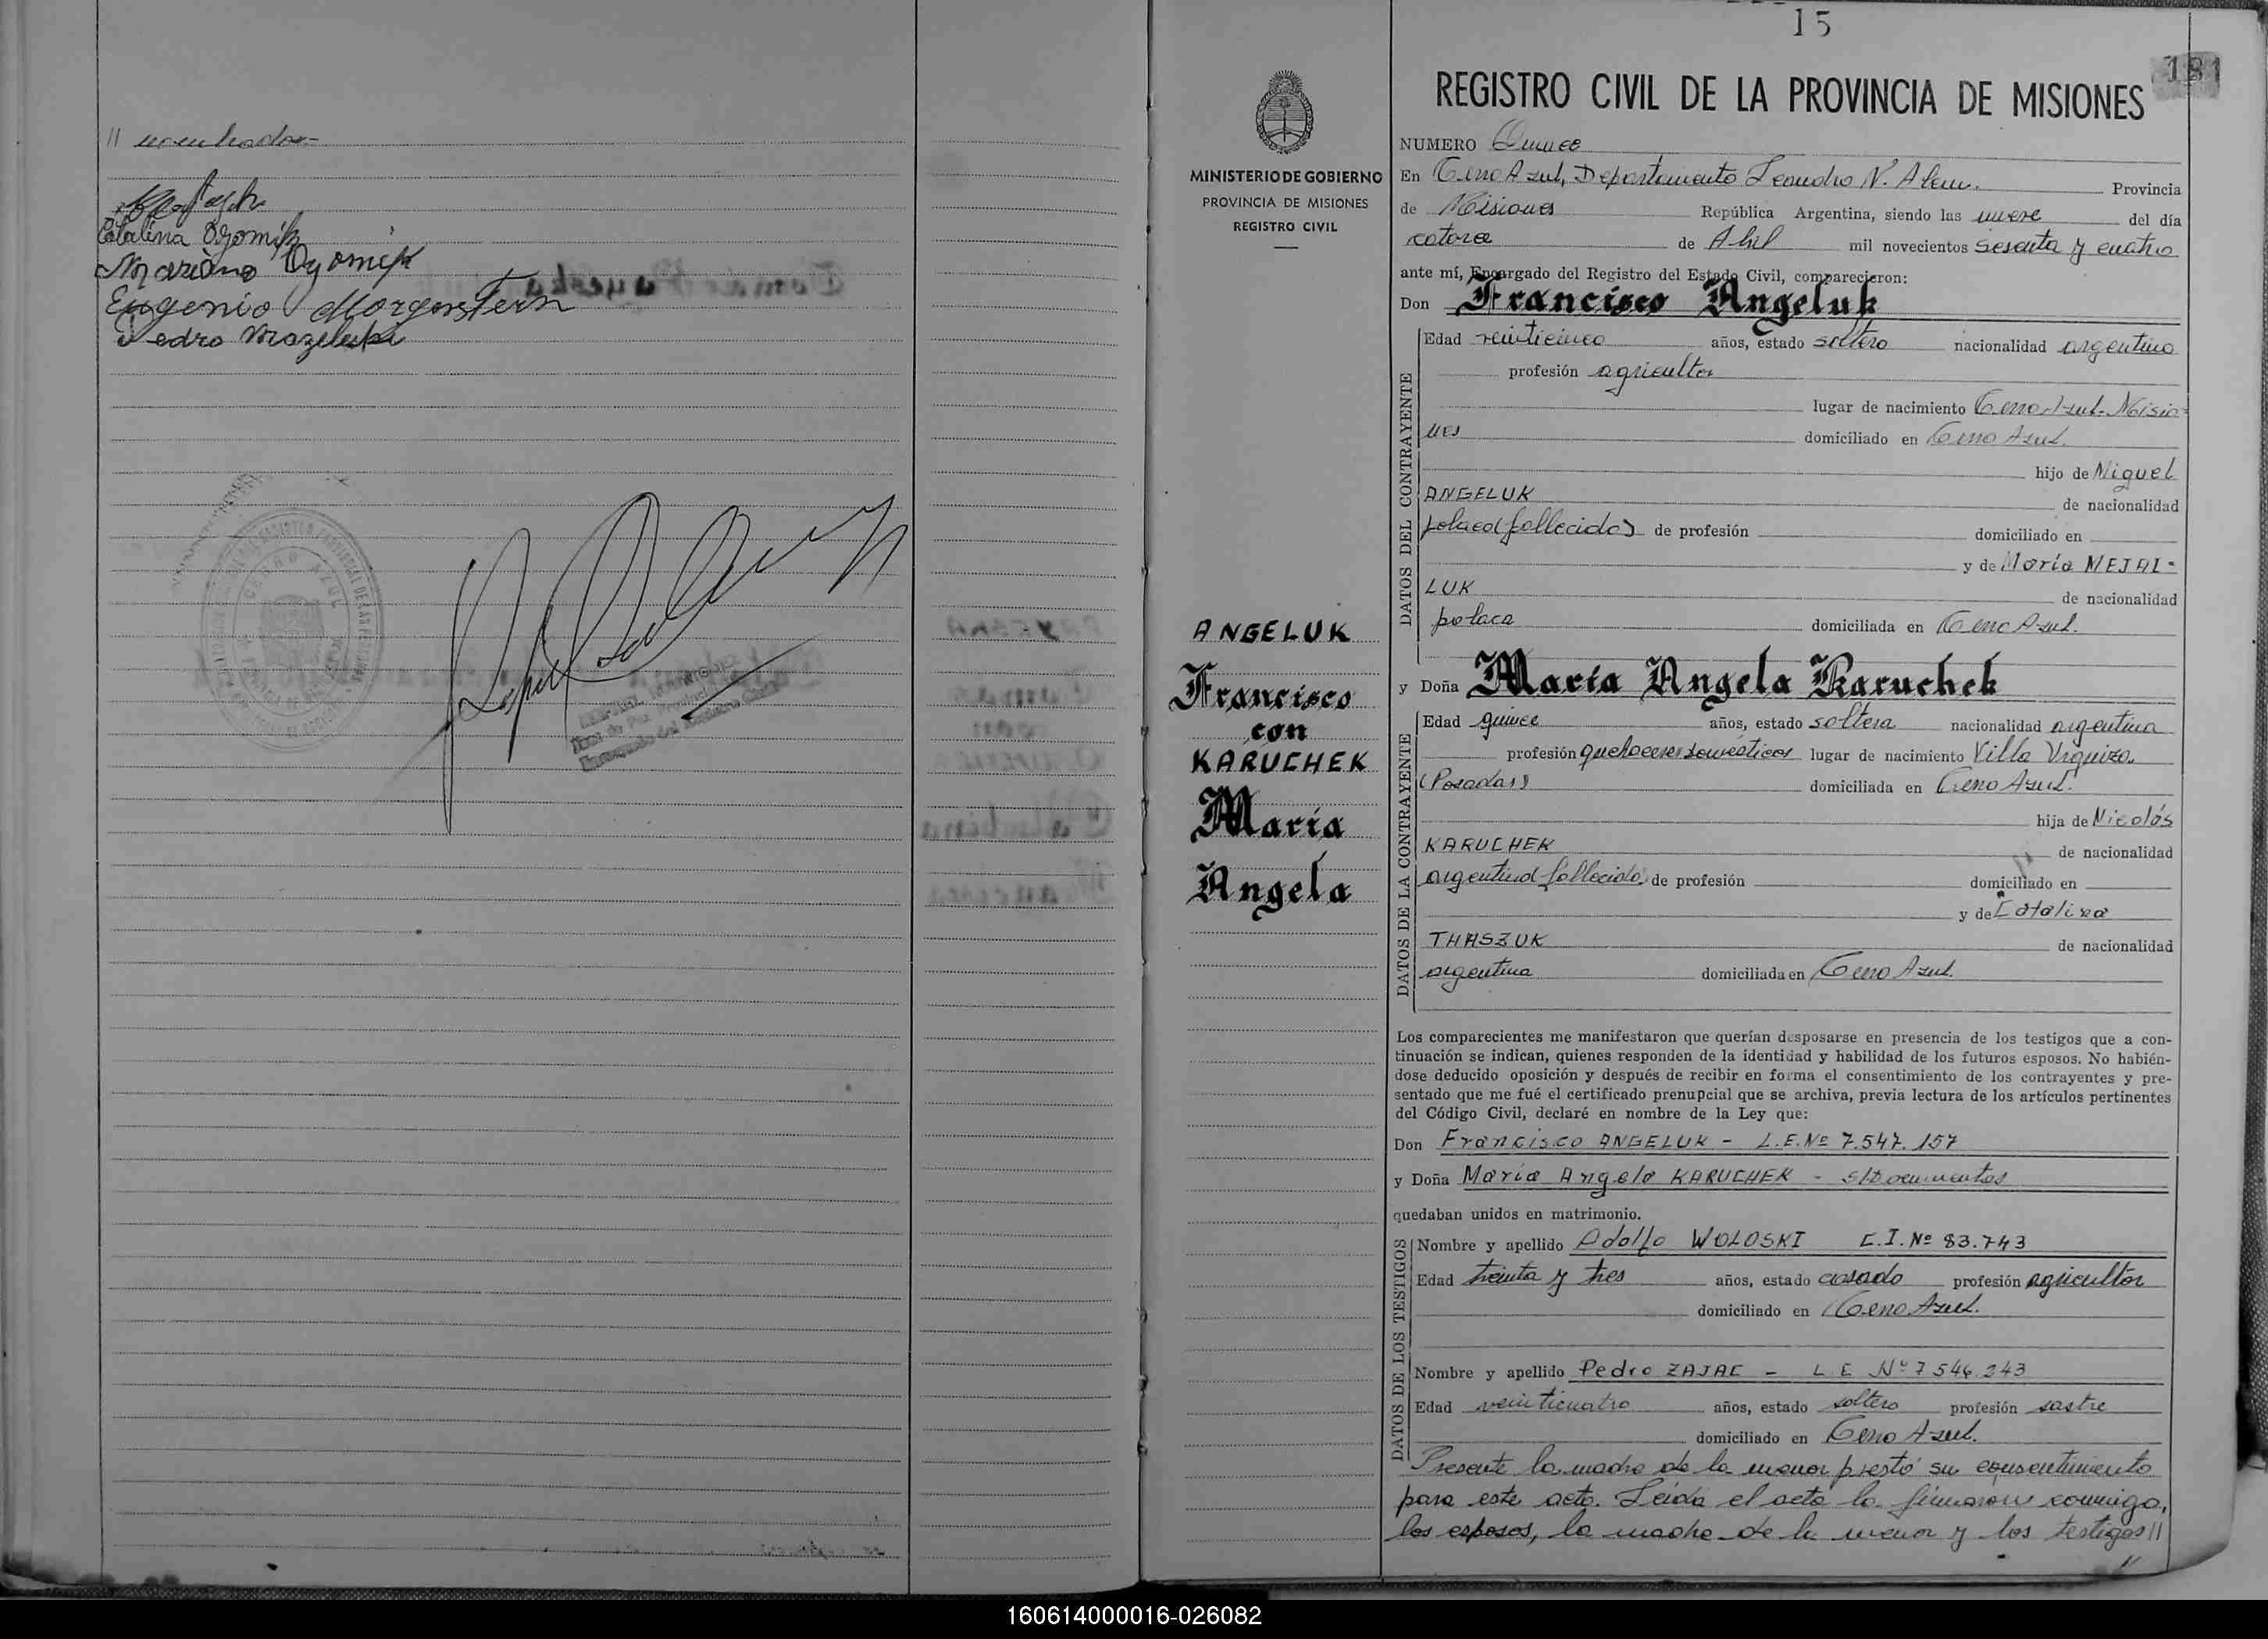 // nombrados-
Catalina Dyomik
Mariano Dyomik
Eugenio Morgenstern
Pedro Mazeluk
CERRO AZUL
15
181
REGISTRO CIVIL DE LA PROVINCIA DE MISIONES
MINISTERIO DE GOBIERNO
PROVINCIA DE MISIONES
REGISTRO CIVIL
ANGELUK
Francisco
con
KARUCHEK
María
Angela
NUMERO Quince
En Cerro Azul, Departamento Leandro N. Alem. Provincia
de Misiones República Argentina, siendo las nueve del día
catorce de Abril mil novecientos sesenta y cuatro
ante mí, Encargado del Registro del Estado Civil, comparecieron:
Don Francisco Angeluk
DATOS DEL CONTRAYENTE
Edad veinticinco años, estado soltero nacionalidad argentino
profesión agricultor
lugar de nacimiento Cerro Azul-Misio-
nes domiciliado en Cerro Azul.
hijo de Miguel
ANGELUK de nacionalidad
polaco(fallecido) de profesión domiciliado en
y de María MEJAL-
LUK de nacionalidad
polaca domiciliada en Cerro Azul.
y Doña María Angela Karuchek
DATOS DE LA CONTRAYENTE
Edad quince años, estado soltera nacionalidad argentina
profesión quehaceres domésticos lugar de nacimiento Villa Urquiza
(Posadas) domiciliada en Cerro Azul.
hija de Nicolás
KARUCHEK de nacionalidad
argentino(fallecido) de profesión domiciliado en
y de Catalina
THASZUK de nacionalidad
argentina domiciliada en Cerro Azul.
Los comparecientes me manifestaron que querían desposarse en presencia de los testigos que a con-
tinuación se indican, quienes responden de la identidad y habilidad de los futuros esposos. No habién-
dose deducido oposición y después de recibir en forma el consentimiento de los contrayentes y pre-
sentado que me fué el certificado prenupcial que se archiva, previa lectura de los artículos pertinentes
del Código Civil, declaré en nombre de la Ley que:
Don Francisco ANGELUK - L.E.Nº 7.547.157
y Doña María Angela KARUCHEK - S/Documentos
quedaban unidos en matrimonio.
DATOS DE LOS TESTIGOS
Nombre y apellido Adolfo WOLOSKI C.I.Nº 83.743
Edad treinta y tres años, estado casado profesión agricultor
domiciliado en Cerro Azul.
Nombre y apellido Pedro ZAJAC - L E Nº 7 546.243
Edad veinticuatro años, estado soltero profesión sastre
domiciliado en Cerro Azul.
Presente la madre de la menor prestó su consentimiento
para este acto. Leída el acta la firmaron conmigo,
los esposos, la madre de la menor y los testigos //
//
160614000016-026082